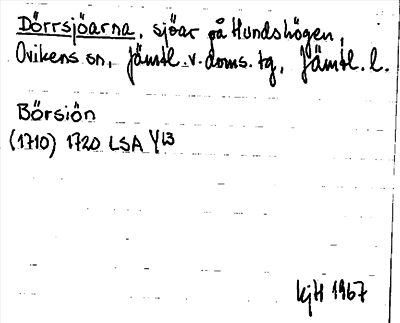 Dörrsjöarna, sjöar på Hundshögen,
Ovikens sn, Jämtl. v. doms. tg, Jämtl. l.
Börsiön
(1710) 1720 LSA Y13
kjH 1967